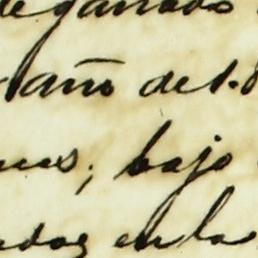 de ganado
año de 1.8
nas; bajo
dos en la